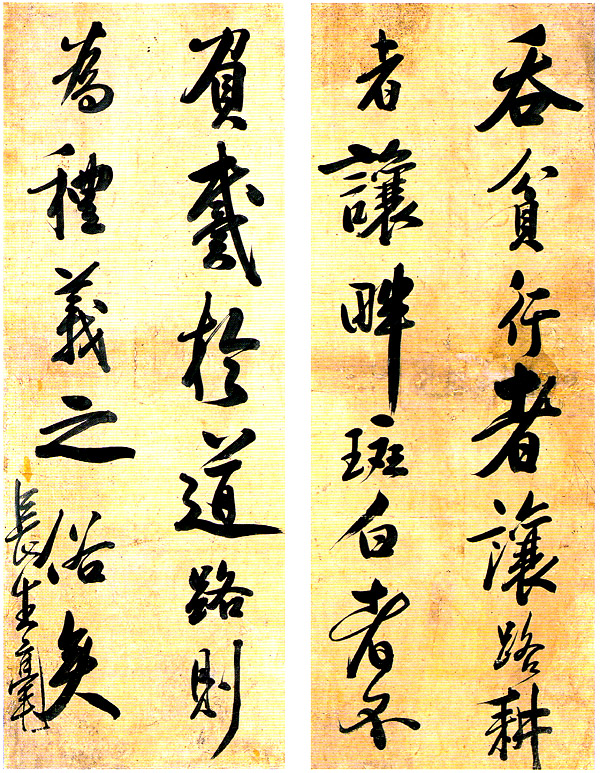 吞貧行者讓路耕
者讓畔斑白者不
負戴於道路則
為禮義之俗矣
長生